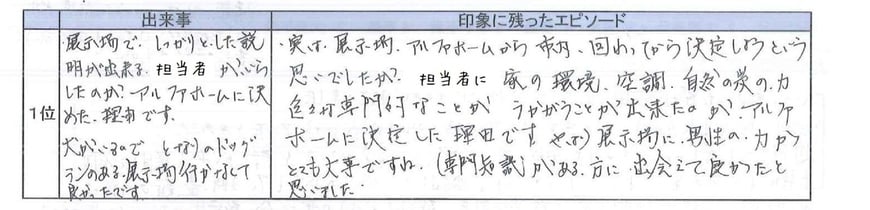 出来事
印象に残ったエピソード
1位
展示場で、しっかりとした説
明が出来る、担当者が、いら
したのが、アルファホームに決
めた、理由です。
犬がいるので となりのドッグ
ランのある、展示場行かなくて
良かったです。
・実は、展示場、アルファホームから市内、回わってから決定しようという
思いでしたが、担当者に 家の環境、空調、自然の炭の力
色々な専門的なことが うかがうことが出来たのが、アルファ
ホームに決定した理由です やっぱり展示場に、男性の、力が
とても大事ですね。(専門知識)がある、方に 出会えて良かったと
思いました。